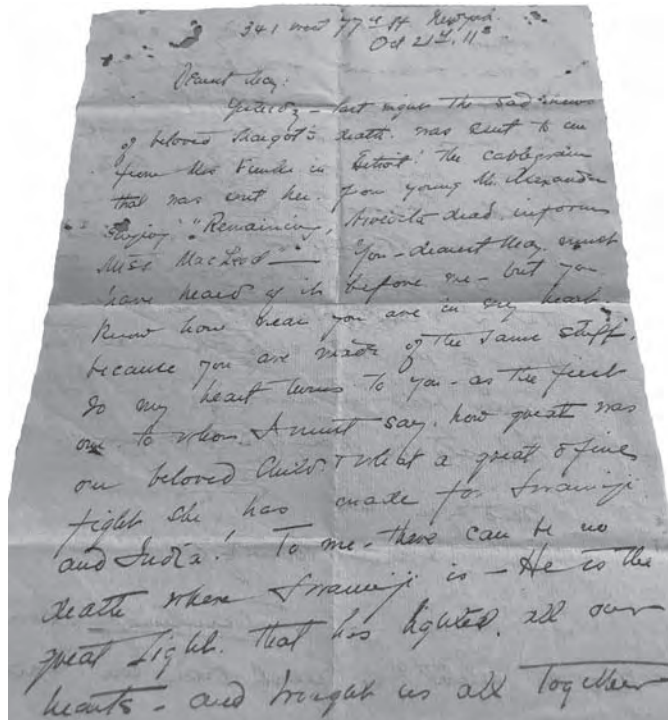 341 West 77th St New York.
Oct 21st, 11
Dearest May.
Yesterday - last night the sad news
of beloved Margot's death. was sent to me
from Mrs Funke in Detroit! The cablegram
that was sent her. from young Mr. Alexander
saying "Remaining, Nivedita dead, inform
Miss MacLeod" — You - dearest May, must
have heard of it before me - but you
know how near you are in my heart.
because you are made of the same stuff.
So my heart turns to you - as the first
one to whom I must say. how great was
our beloved Child. & what a great & fine
fight she has made for Swamiji
and India! To me - there can be no
death where Swamiji is - He is the
great Light. that has lighted. all our
hearts - and brought us all together